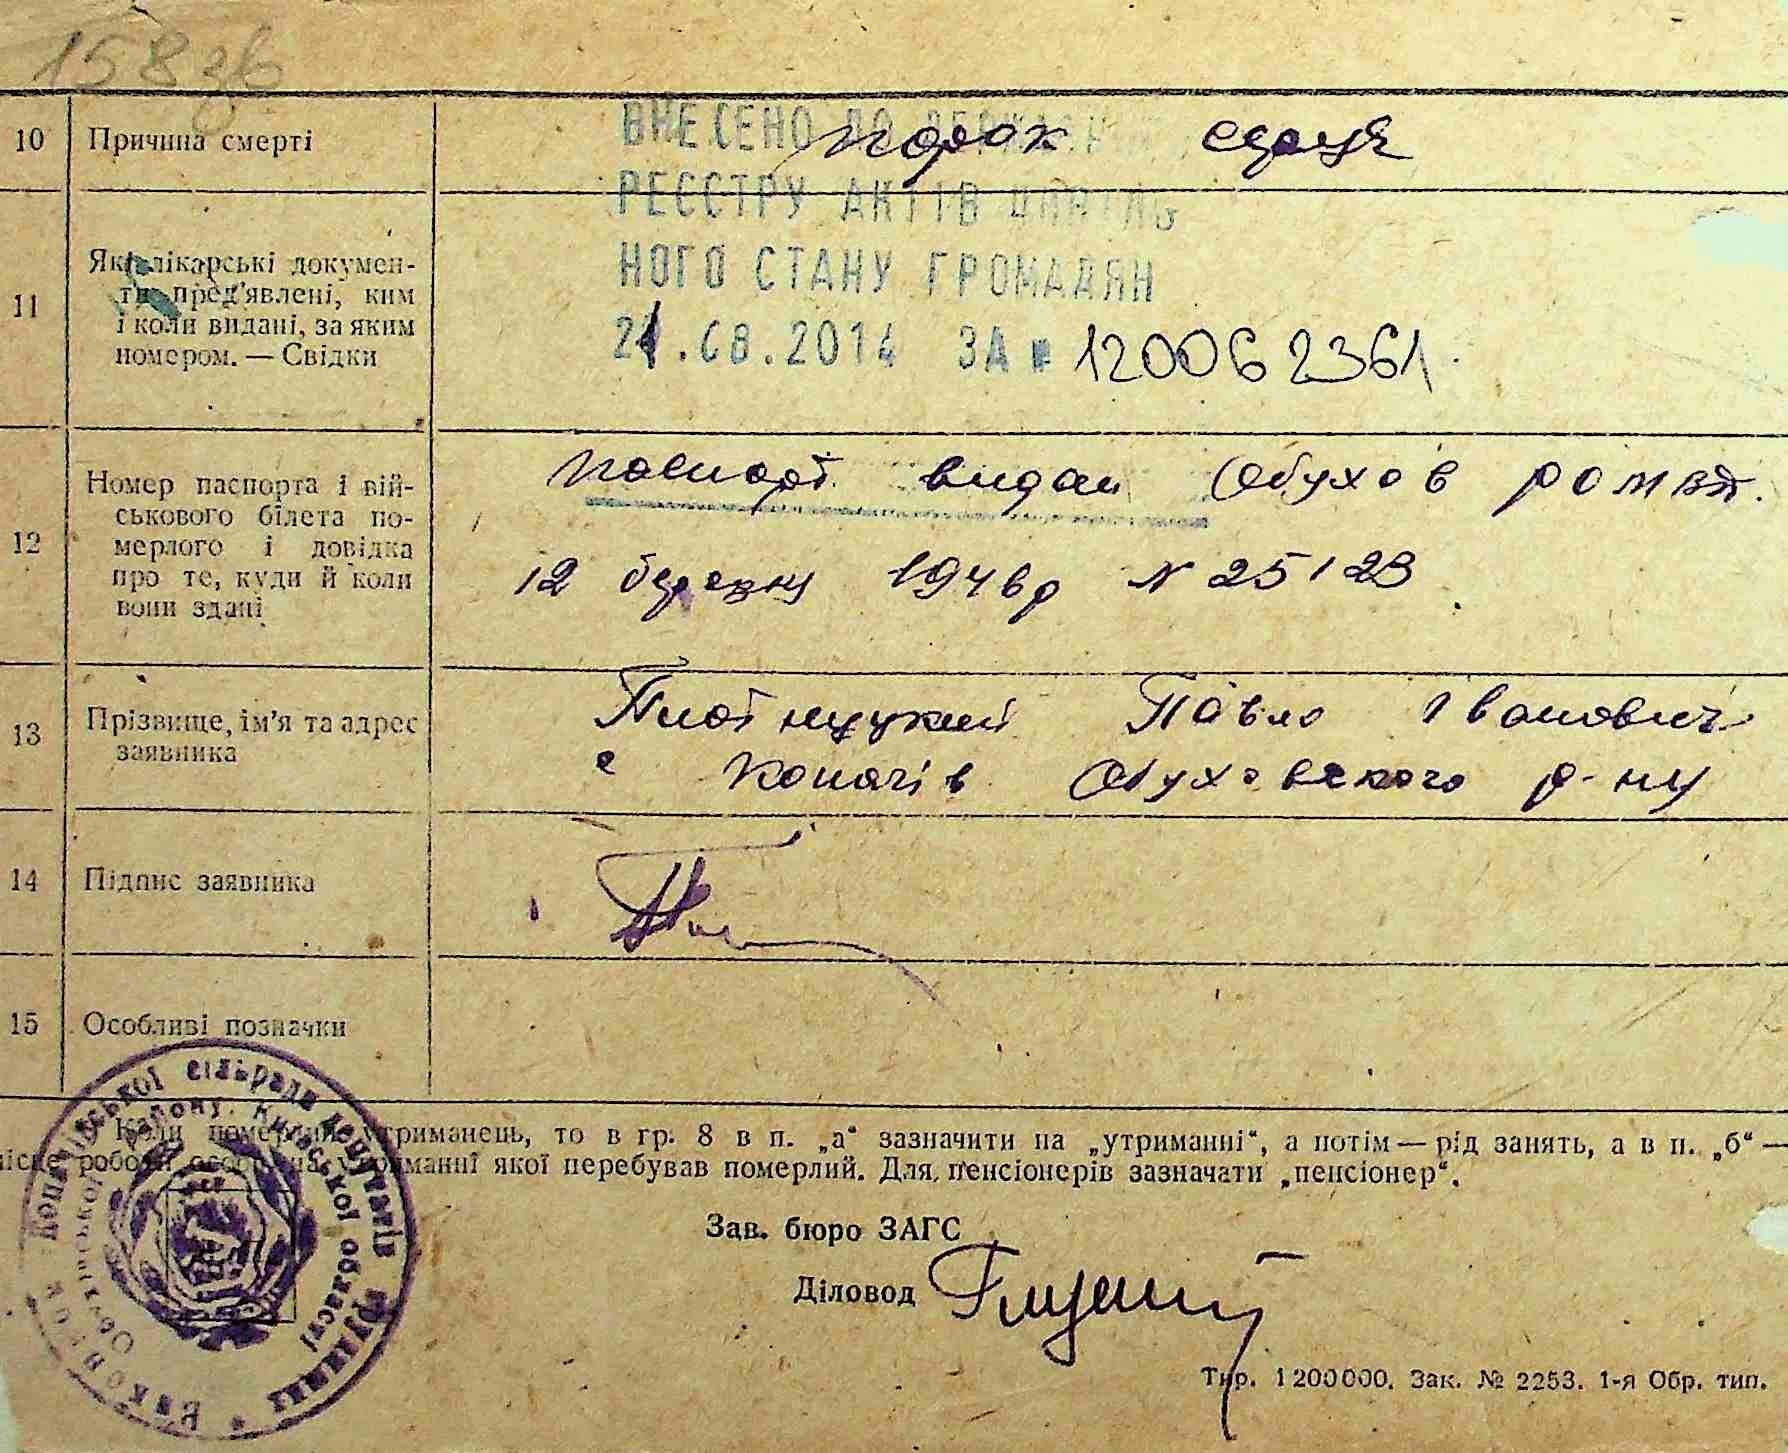 158 зв
10 Причина смерті порок серця
ВНЕСЕНО ДО ДЕРЖАВН
РЕЄСТРУ АКТІВ ЦИВІЛЬ
НОГО СТАНУ ГРОМАДЯН
21.08.2014 ЗА № 12006 2361.
11 Які лікарські докумен-
ти пред'явлені, ким
і коли видані, за яким
номером. — Свідки
12 Номер паспорта і вій-
ськового білета по-
мерлого і довідка
про те, куди й коли
вони здані
паспорт видан Обухов
12 березня 194 р N 25123
13 Прізвище, ім'я та адрес
заявника
Павло Іванович
с Копачів Обуховского р-ну
14 Підпис заявника
15 Особливі позначки
Коли померлий утриманець, то в гр. 8 в п. „а“ зазначити на „утриманні“, а потім — рід занять, а в п. „б“ —
місце роботи особи, на утриманні якої перебував померлий. Для пенсіонерів зазначати „пенсіонер“.
Зав. бюро ЗАГС
Діловод
Тир. 1200000. Зак. № 2253. 1-я Обр. тип.
Виконком Копачівської сільради депутатів трудящих
Обухівського району. Київської області